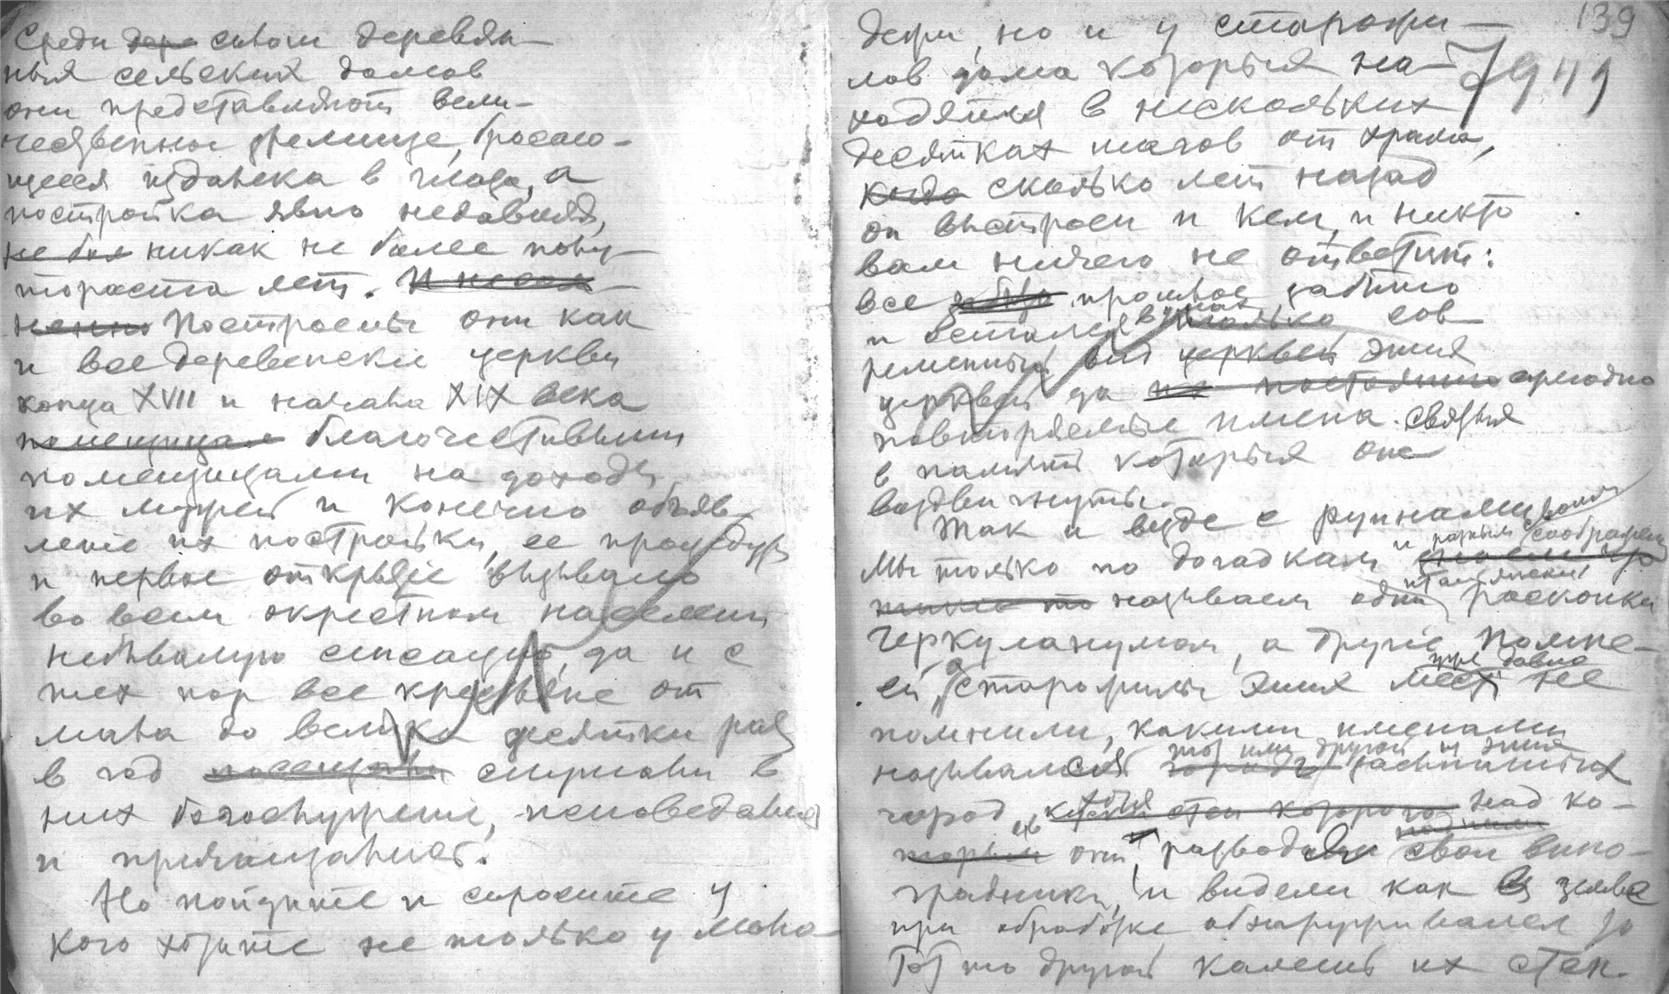 Среди дере сивых деревян-
ных сельских домов
они представляют вели-
чественное зрелище, бросаю-
щееся издалека в глаза, а
постройка явно недавняя,
не бол никак не более полу-
тораста лет.
Построены они как
и все деревенские церкви
конца XVII и начала XIX века
помещицам благочестивыми
помещицами на доходы
их мужей и конечно объяв-
ление их постройки, ее процедура
и первое открытие вызывало
во всем окрестном населении
небывалую сенсацию, да и с
тех пор все крестьяне от
мала до велика десятки раз
в год посещали слушали в
них богослужение, исповедались
и причащались.
Но пойдите и спросите у
кого хотите не только у моло-
139
7941
дежи, но и у старожи-
лов дома которых на-
ходятся в нескольких
десятках шагов от храма,
когда сколько лет назад
он выстроен и кем, и никто
вам ничего не ответит:
все прошлое забыто
и остался в умах только сов-
ременный вид церквей этих
церквей да их постоянно ежегодно
повторяемые имена святых
в память которых они
воздвигнуты.
Так и везде с руинами
Мы только по догадкам и разным соображениям
называем одни итальянские раскопки
Геркуланумом, а другие Помпе-
ей, а старожилы этих мест уже давно не
помнили, какими именами
назывался тот или другой из этих засыпанных
город, стен которого над ко-
торым они разводили свои вино-
градники, и видели как в земле
при обработке обнаруживался то
тот то другой камень их стен.